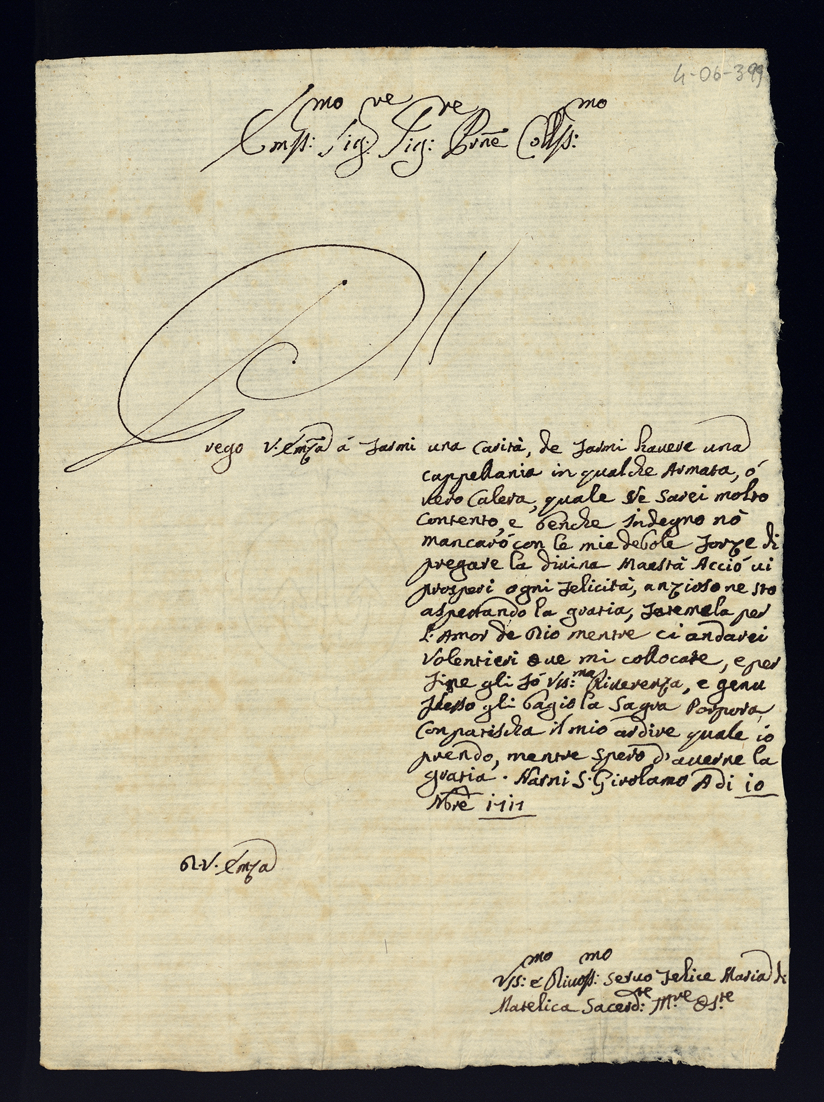 4-06-399
Em͠ss:mo Sig:re Sig:re Prñe Coll͠ss:mo
Prego V: Em̃za á farmi una Carità, de farmi havere una
cappellania in qualche Armata, ó
vero Calera, quale Ne sarei molto
contento, e benche Indegno nõ
mancaró con le mie debole forze di
pregare la divina Maestà Acció vi
prosperi ogni felicità, anzioso ne sto
aspettando la gratia, faremela per
l'Amor de Dio mentre ci andarei
Volentieri due mi collocare, e per
fine gli fó Vss:ma Riverenza, e genu
flesso gli bagio la Sagra Porpora,
Conpatischa il mio ardire quale io
prendo, mentre spero d'averne la
gratia. Narni S. Girolamo Adi 10
Nbre 1711
D. V. Em̃za
Vss:mo e Divoss:mo Servo Felice Maria di
Matelica Sacerd:te M:re Os:te